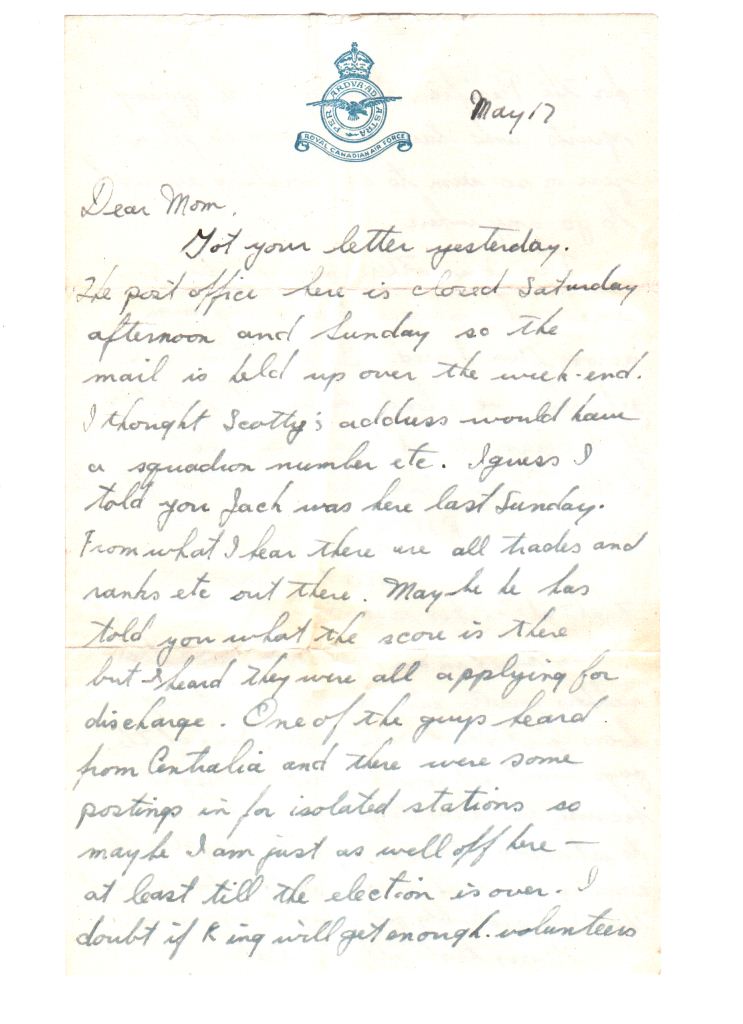 PER ARDVA AD ASTRA
ROYAL CANADIAN AIR FORCE
May 17
Dear Mom,
Got your letter yesterday.
The post office here is closed Saturday
afternoon and Sunday so the
mail is held up over the week-end.
I thought Scotty's address would have
a squadron number etc. I guess I
told you Jack was here last Sunday.
From what I hear there are all trades and
ranks etc out there. Maybe he has
told you what the score is there
but I heard they were all applying for
discharge. One of the guys heard
from Centralia and there were some
postings in for isolated stations so
maybe I am just as well off here —
at least till the election is over. I
doubt if King will get enough volunteers